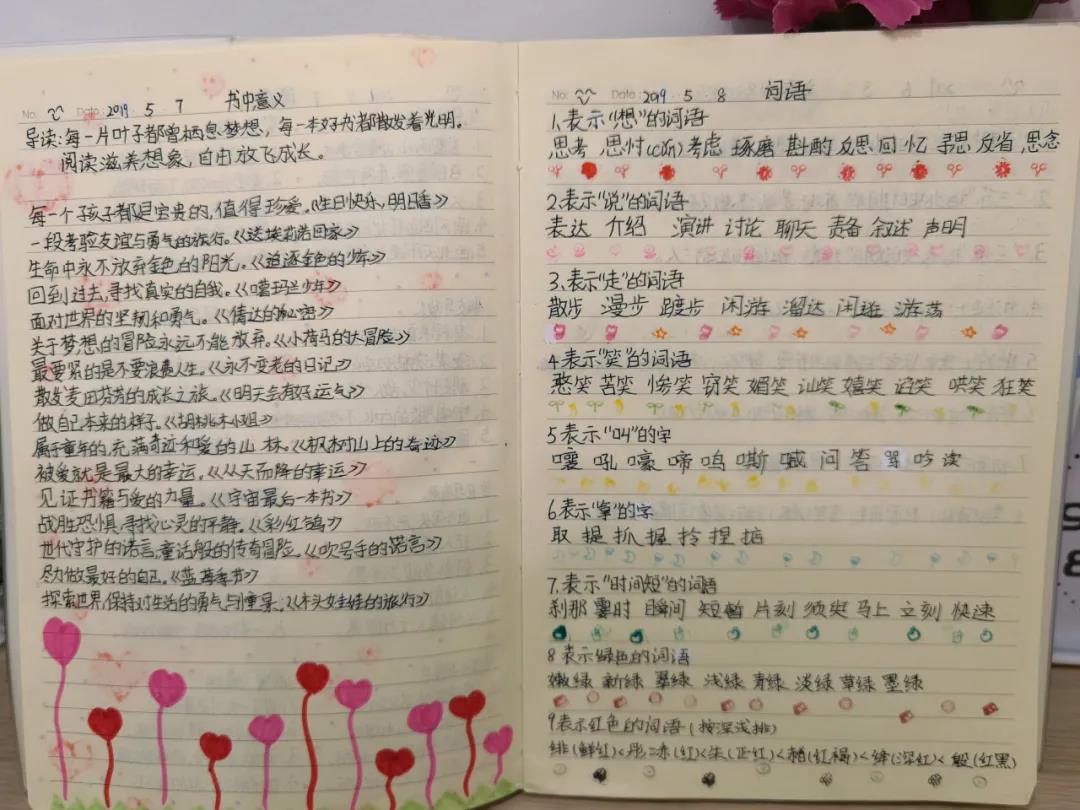 No: Date: 2019 . 5 . 7 书中意义
导读:每一片叶子都曾栖息梦想，每一本好书都散发着光明。
阅读滋养想象，自由放飞成长。
每一个孩子都是宝贵的,值得珍爱。《生日快乐,明日香》
一段考验友谊与勇气的旅行。《送埃莉诺回家》
生命中永不放弃金色的阳光。《追逐金色的少年》
回到过去,寻找真实的自我。《嘻玛兰少年》
面对世界的坚韧和勇气。《倩达的秘密》
关于梦想的冒险永远不能放弃。《小荷马的大冒险》
最要紧的是不要浪费人生。《永不变老的日记》
散发麦田芬芳的成长之旅。《明天会有好运气》
做自己本来的样子。《胡桃木小姐》
属于童年的,充满奇迹和爱的山林。《枫树山上的奇迹》
被爱就是最大的幸运。《从天而降的幸运》
见证书籍与爱的力量。《宇宙最后一本书》
战胜恐惧,寻找心灵的平静。《彩虹鸽》
世代守护的诺言,童话般的传奇冒险。《吹号手的诺言》
尽力做最好的自己。《蓝莓季节》
探索世界,保持对生活的勇气与憧憬:《木头娃娃的旅行》
No: Date: 2019 5 8 词语
1.表示“想”的词语
思考 思忖(cǔn) 考虑 琢磨 斟酌 反思 回忆 寻思 反省 思念
2.表示“说”的词语
表达 介绍 演讲 讨论 聊天 责备 叙述 声明
3.表示“走”的词语
散步 漫步 踱步 闲游 溜达 闲逛 游荡
4.表示“笑”的词语
憨笑 苦笑 惨笑 窃笑 媚笑 讪笑 嬉笑 谄笑 哄笑 狂笑
5表示“叫”的字
嚷 吼 嚎 啼 鸣 嘶 喊 问 答 骂 吟 读
6.表示“拿”的字
取 提 抓 握 拎 捏 掂
7.表示“时间短”的词语
刹那 霎时 瞬间 短暂 片刻 须臾 马上 立刻 快速
8 表示绿色的词语
嫩绿 新绿 翠绿 浅绿 青绿 淡绿 草绿 墨绿
9表示红色的词语(按深浅排)
绯(鲜红)<彤=赤(红)<朱(正红)<赭(红褐)<绛(深红)<殷(红黑)